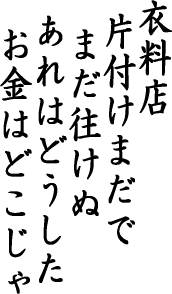 衣料店
片付けまだで
まだ往けぬ
あれはどうした
お金はどこじゃ